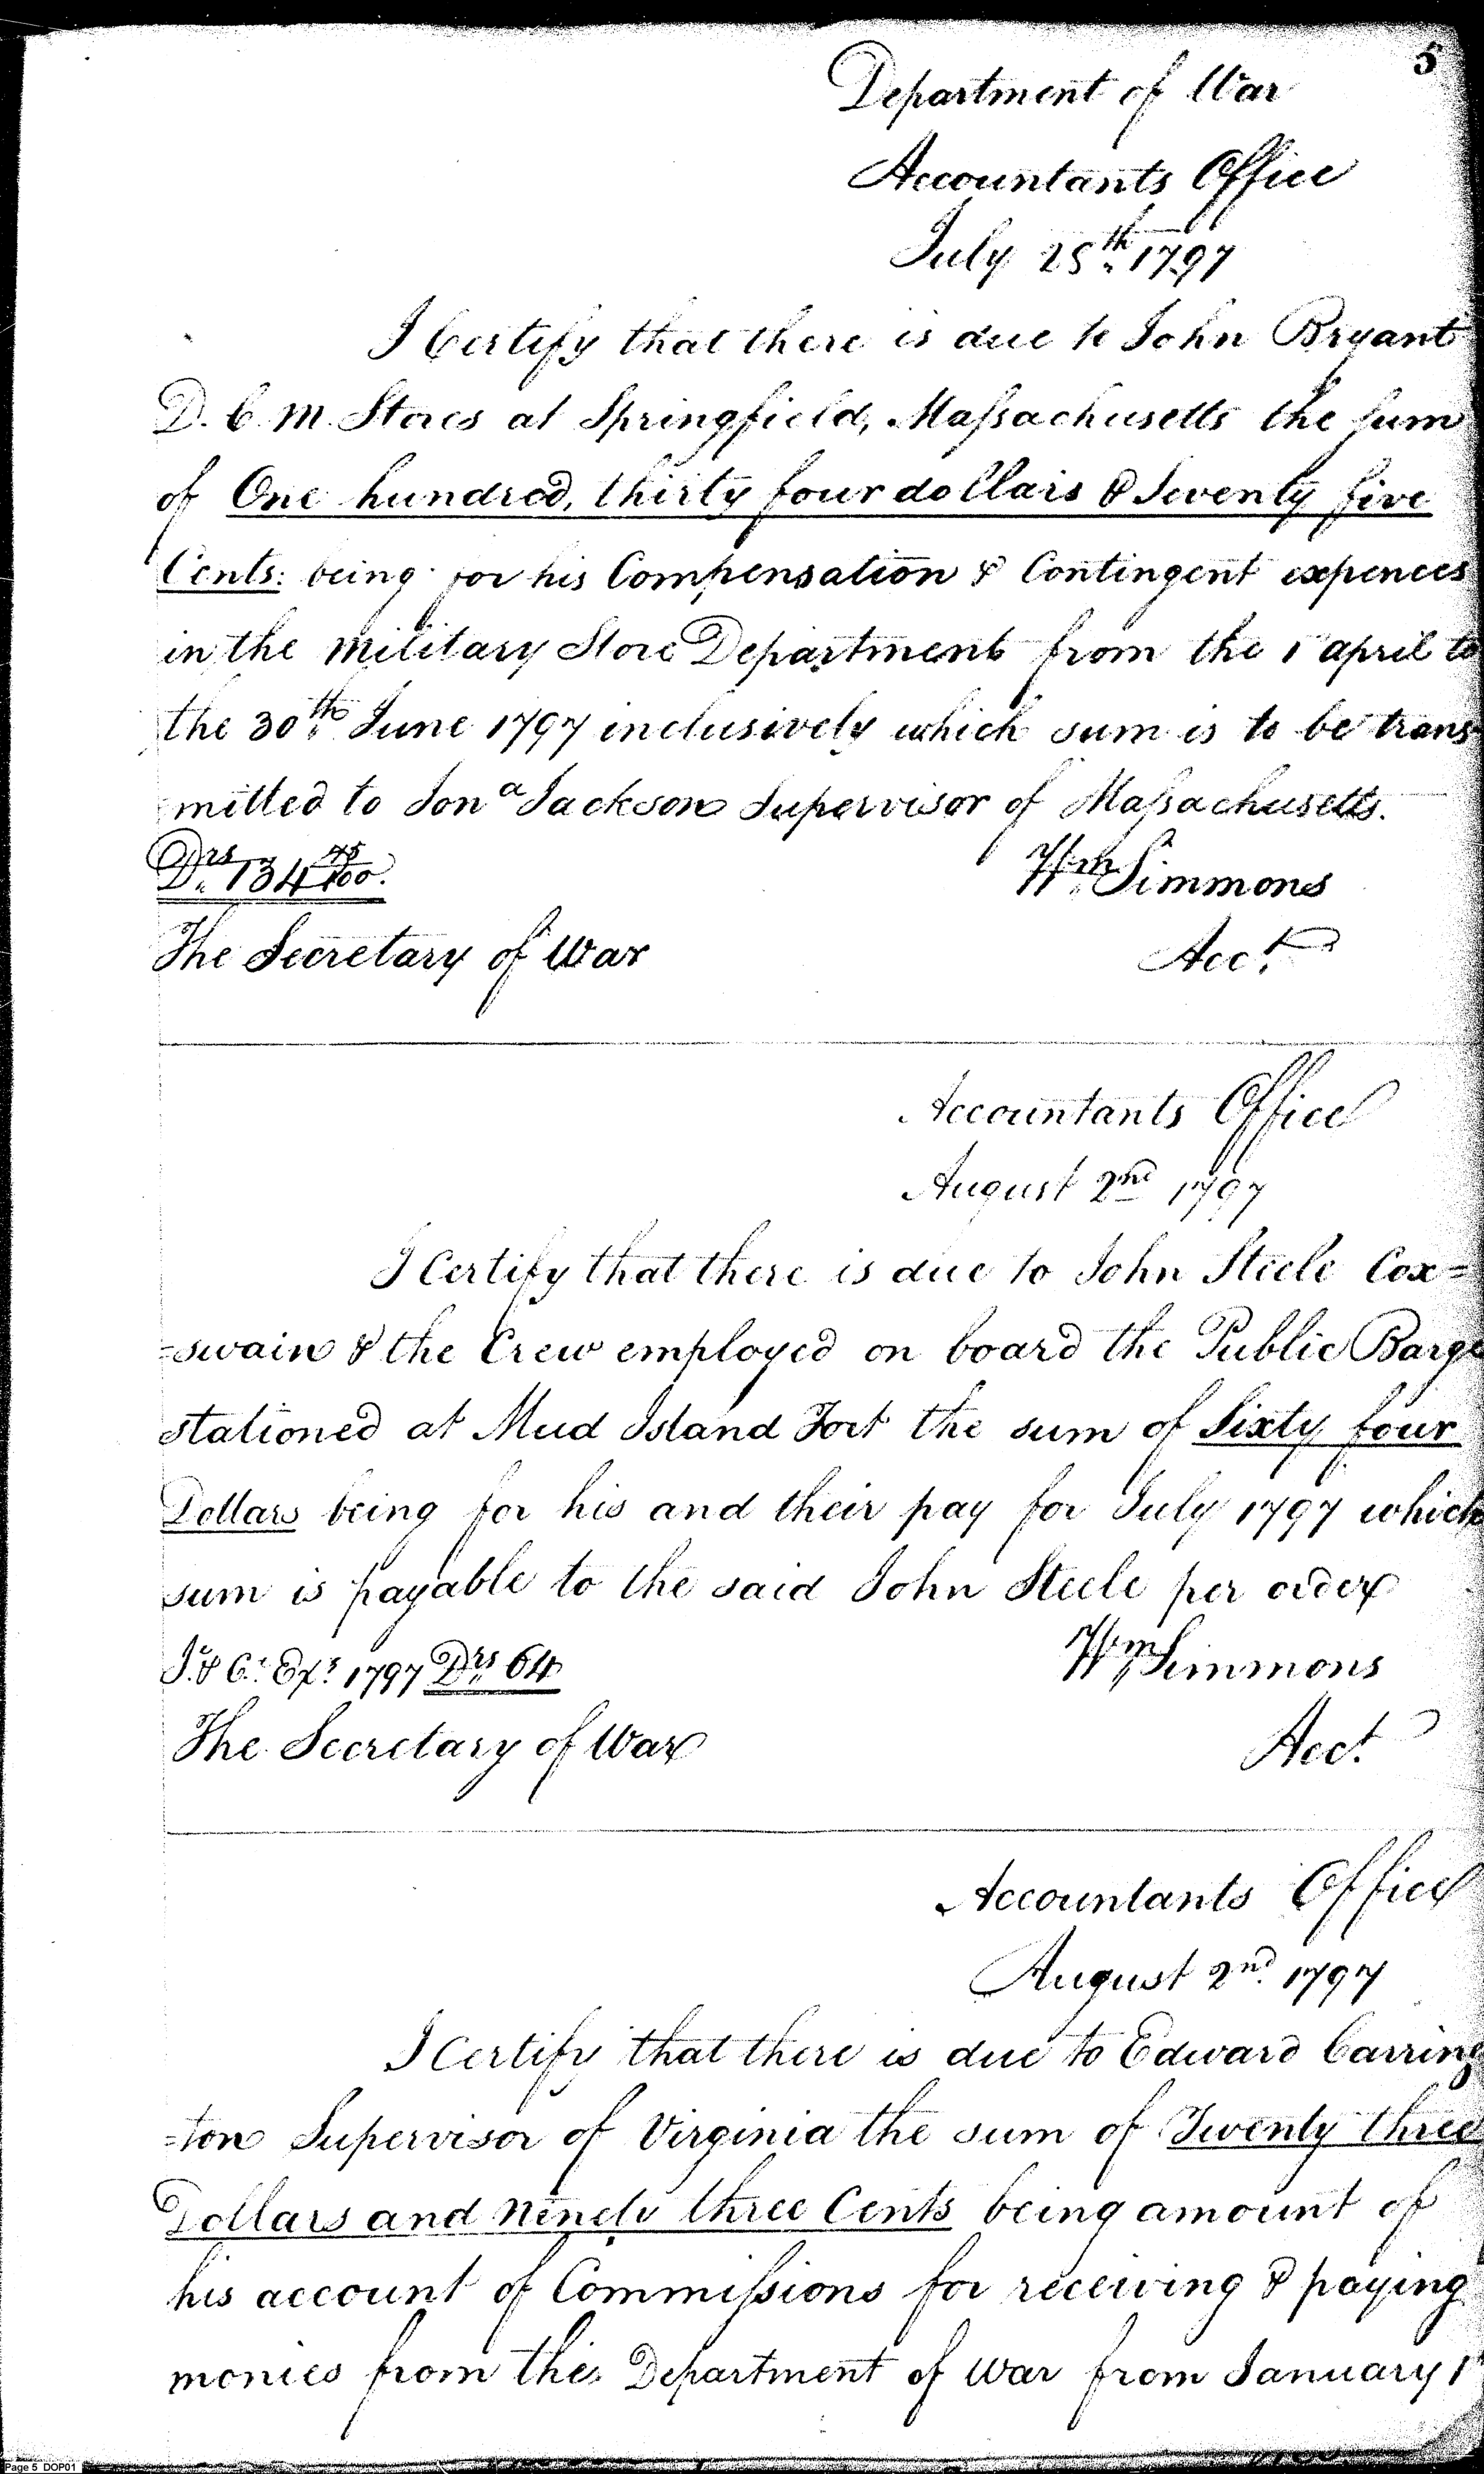 5
Department of War
Accountants Office
July 28th 1797
I Certify that there is due to John Bryant
D. C. M. Stores at Springfield, Maſsachusetts the sum
of One hundred, thirty four dollars & Seventy five
Cents: being for his Compensation & Contingent expences
in the Military Store Department from the 1 april to
the 30th June 1797 inclusively which sum is to be trans-
mitted to Jona Jackson Supervisor of Maſsachusetts.
Drs 134 75/100.
Wm Simmons
The Secretary of War
Acct.
Accountants Office
August 2nd 1797
I Certify that there is due to John Steele Cox=
=swain & the Crew employed on board the Public Barge
stationed at Mud Island Fort the sum of Sixty four
Dollars being for his and their pay for July 1797 which
sum is payable to the said John Steele per order
I. & C. Exs. 1797 Drs 64
Wm Simmons
The Secretary of War
Acct.
Accountants Office
August 2nd. 1797
I Certify that there is due to Edward Carring
=ton Supervisor of Virginia the sum of Twenty three
Dollars and Ninety three Cents being amount of
his account of Commiſsions for receiving & paying
monies from the Department of War from January 1
Page 5 DOP01